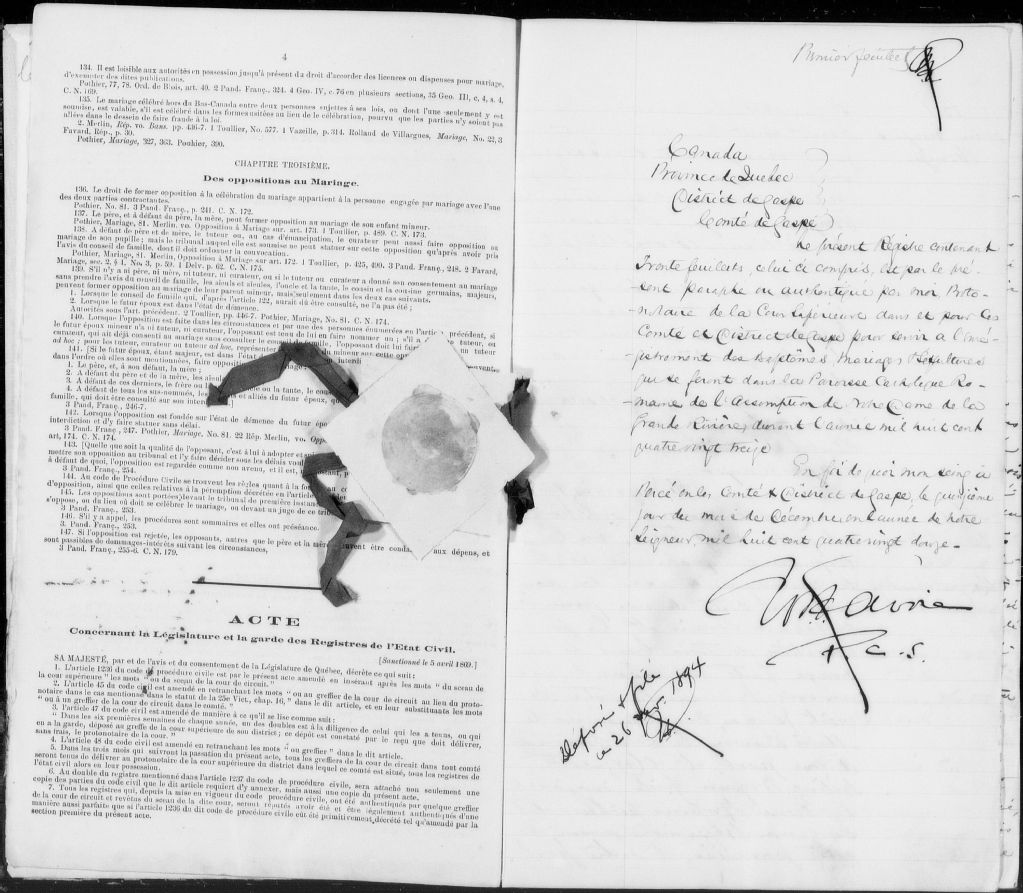 4
134. Il est loisible aux autorités en possession jusqu'à présent du droit d'accorder des licences ou dispenses pour mariage,
d'exempter des dites publications.
Pothier, 77, 78. Ord. de Blois, art. 40. 2 Pand. Franç., 324. 4 Geo. IV, c. 76 en plusieurs sections, 35 Geo. III, c, 4, s. 4,
C. N. 169.
135. Le mariage célébré hors du Bas-Canada entre deux personnes sujettes à ses lois, ou dont l'une seulement y est
soumise, est valable, s'il est célébré dans les formes usitées au lieu de la célébration, pourvu que les parties n'y soient pas
allées dans le dessein de faire fraude à la loi.
2. Merlin, Rép. vo. Bans. pp. 436-7. 1 Toullier, No. 577. 1 Vazeille, p. 314. Rolland de Villargues, Mariage, No. 23, 3
Favard, Rép., p. 30.
Pothier, Mariage, 327, 363. Pothier, 390.
CHAPITRE TROISIÈME.
Des oppositions au Mariage.
136. Le droit de former opposition à la célébration du mariage appartient à la personne engagée par mariage avec l'une
des deux parties contractantes.
Pothier, No. 81. 3 Pand. Franç., p. 241. C. N. 172.
137. Le père, et à défaut du père, la mère, peut former opposition au mariage de son enfant mineur.
Pothier, Mariage, 81. Merlin. vo. Opposition à Mariage sur art. 173. 1 Toullier, p. 489. C. N. 173.
138. A défaut de père et de mère, le tuteur ou, au cas d'émancipation, le curateur peut aussi faire opposition au
mariage de son pupille; mais le tribunal auquel elle est soumise ne peut statuer sur cette opposition qu'après avoir pris
l'avis du conseil de famille, dont il doit ordonner la convocation.
Pothier, Mariage, 81. Merlin, Opposition à Mariage sur art. 172. 1 Toullier, p. 425, 490. 3 Pand. Franç., 248. 2 Favard,
Mariage, sec. 2, § 1, No. 3, p. 59. 1 Delv. p. 62. C. N. 175.
139. S'il n'y a ni père, ni mère, ni tuteur, ni curateur, ou si le tuteur ou curateur a donné son consentement au mariage
sans prendre l'avis du conseil de famille, les aïeuls et aïeules, l'oncle et la tante, le cousin et la cousine germains, majeurs,
peuvent former opposition au mariage de leur parent mineur, mais seulement dans les deux cas suivants.
1. Lorsque le conseil de famille qui, d'après l'article 122, aurait dû être consulté, ne l'a pas été;
2. Lorsque le futur époux est dans l'état de démence.
Autorités sous l'art. précédent. 2 Toullier, pp. 446-7. Pothier, Mariage, No. 81. C. N. 174.
140. Lorsque l'opposition est faite dans les circonstances et par une des personnes énumérées en l'article précédent, si
le futur époux mineur n'a ni tuteur, ni curateur, l'opposant est tenu de lui en faire nommer un; s'il a tuteur, ou
curateur, qui ait déjà consenti au mariage sans consulter le conseil de famille, l'opposant doit lui faire un tuteur
ad hoc; pour les tuteur, curateur ou tuteur ad hoc, représenter mineur sur cette opp
141. [Si le futur époux, étant majeur, est dans l'état interdit
dans l'ordre où elles sont mentionnées, faire opposition suivent..
1. Le père, et, à son défaut, la mère;
2. A défaut du père et de la mère, les aïeuls
3. A défaut de ces derniers, le frère ou la ou la tante, le cou
4. A défaut de tous les sus-nommés, les et alliés du futur époux, qu
famille, qui doit être consulté sur son inter
3 Pand. Franç., 246-7.
142. Lorsque l'opposition est fondée sur l'état de démence du futur épo
interdiction et d'y faire statuer sans délai.
3 Pand. Franç., 247. Pothier, Mariage, No. 81. 22 Rép. Merlin, vo. Opp
art, 174. C. N. 174.
143. [Quelle que soit la qualité de l'opposant, c'est à lui à adopter et sui
mettre son opposition au tribunal et l'y faire décider sous les délais vou
à défaut de quoi, l'opposition est regardée comme non avenu, et il est,
3 Pand. Franç., 254.
144. Au code de Procédure Civile se trouvent les règles quant à la fo
d'opposition, ainsi que celles relatives à la péremption décrétée en l'article
145. Les oppositions sont portées devant le tribunal de première instan
s'oppose, ou du lieu où doit se célébrer le mariage, ou devant un juge de ce trib
3 Pand. Franç., 253.
146. S'il y a appel, les procédures sont sommaires et elles ont préséance.
3. Pand. Franç., 253.
147. Si l'opposition est rejetée, les opposants, autres que le père et la mère être conda aux dépens, et
sont passibles de dommages-intérêts suivant les circonstances,
3 Pand. Franç., 255-6. C. N. 179.
ACTE
Concernant la Législature et la garde des Registres de l'Etat Civil.
[Sanctionné le 5 avril 1869.]
SA MAJESTÉ, par et de l'avis et du consentement de la Législature de Québec, décrète ce qui suit:
1. L'article 1236 du code de procédure civile est par le présent acte amendé en insérant après les mots "du sceau de
la cour supérieure" les mots "ou du sceau de la cour de circuit."
2. L'article 45 du code civil est amendé en retranchant les mots "ou au greffier de la cour de circuit au lieu du proto-
notaire dans le cas mentionné dans le statut de la 25e Vict., chap. 16," dans le dit article, et en leur substituant les mots
"ou à un greffier de la cour de circuit dans le comté."
3. l'article 47 du code civil est amendé de manière à ce qu'il se lise comme suit:
"Dans les six premières semaines de chaque année, un des doubles est à la diligence de celui qui les a tenus, ou qui
en a la garde, déposé au greffe de la cour supérieure de son district; ce dépôt est constaté par le reçu que doit délivrer,
sans frais, le protonotaire de la cour."
4. L'article 48 du code civil est amendé en retranchant les mots "ou greffier" dans le dit article.
5. Dans les trois mois qui suivront la passation du présent acte, tous les greffiers de la cour de circuit dans tout comté
seront tenus de délivrer au protonotaire de la cour supérieure du district dans lequel ce comté est situé, tous les registres de
l'état civil alors en leur possession.
6. Au double du registre mentionné dans l'article 1237 du code de procédure civile, sera attaché non seulement une
copie des parties du code civil que le dit article requiert d'y annexer, mais aussi une copie du présent acte.
7. Tous les registres qui, depuis la mise en vigueur du code de procédure civile, ont été authentiqués par quelque greffier
de la cour de circuit et revêtus du sceau de la dite cour, seront réputés avoir été et être légalement authentiqués d'une
manière aussi parfaite que si l'article 1236 du dit code de procédure civile eût été primitivement décrété tel qu'amendé par la
section première du présent acte.
Premier feuillet
Canada
Province de Quebec
District de Gaspé
Comté de Gaspé
Le présent Régistre contenant
Trente feuillets, celui ci compris, est par le pré-
sent paraphé ou authentiqué par moi Proto-
-notaire de la Cour Supérieure dans et pour les
Comté et District de Gaspé pour servir a l'enré-
-gistrement des Baptêmes Mariages & Sépultures
qui se feront dans la Paroisse Catholique Ro-
maine de l'Assomption de Notre Dame de la
Grande Rivière, durant l'année mil huit cent
quatre vingt treize
En foi de quoi mon seing à
Percé en les Comté & District de Gaspé, le quinzième
jour du mois de Décembre en l'année de notre
Seigneur, mil huit cent quatre vingt douze-
Lavoie
P. C. S.
Déposé & filé
ce 26 1894